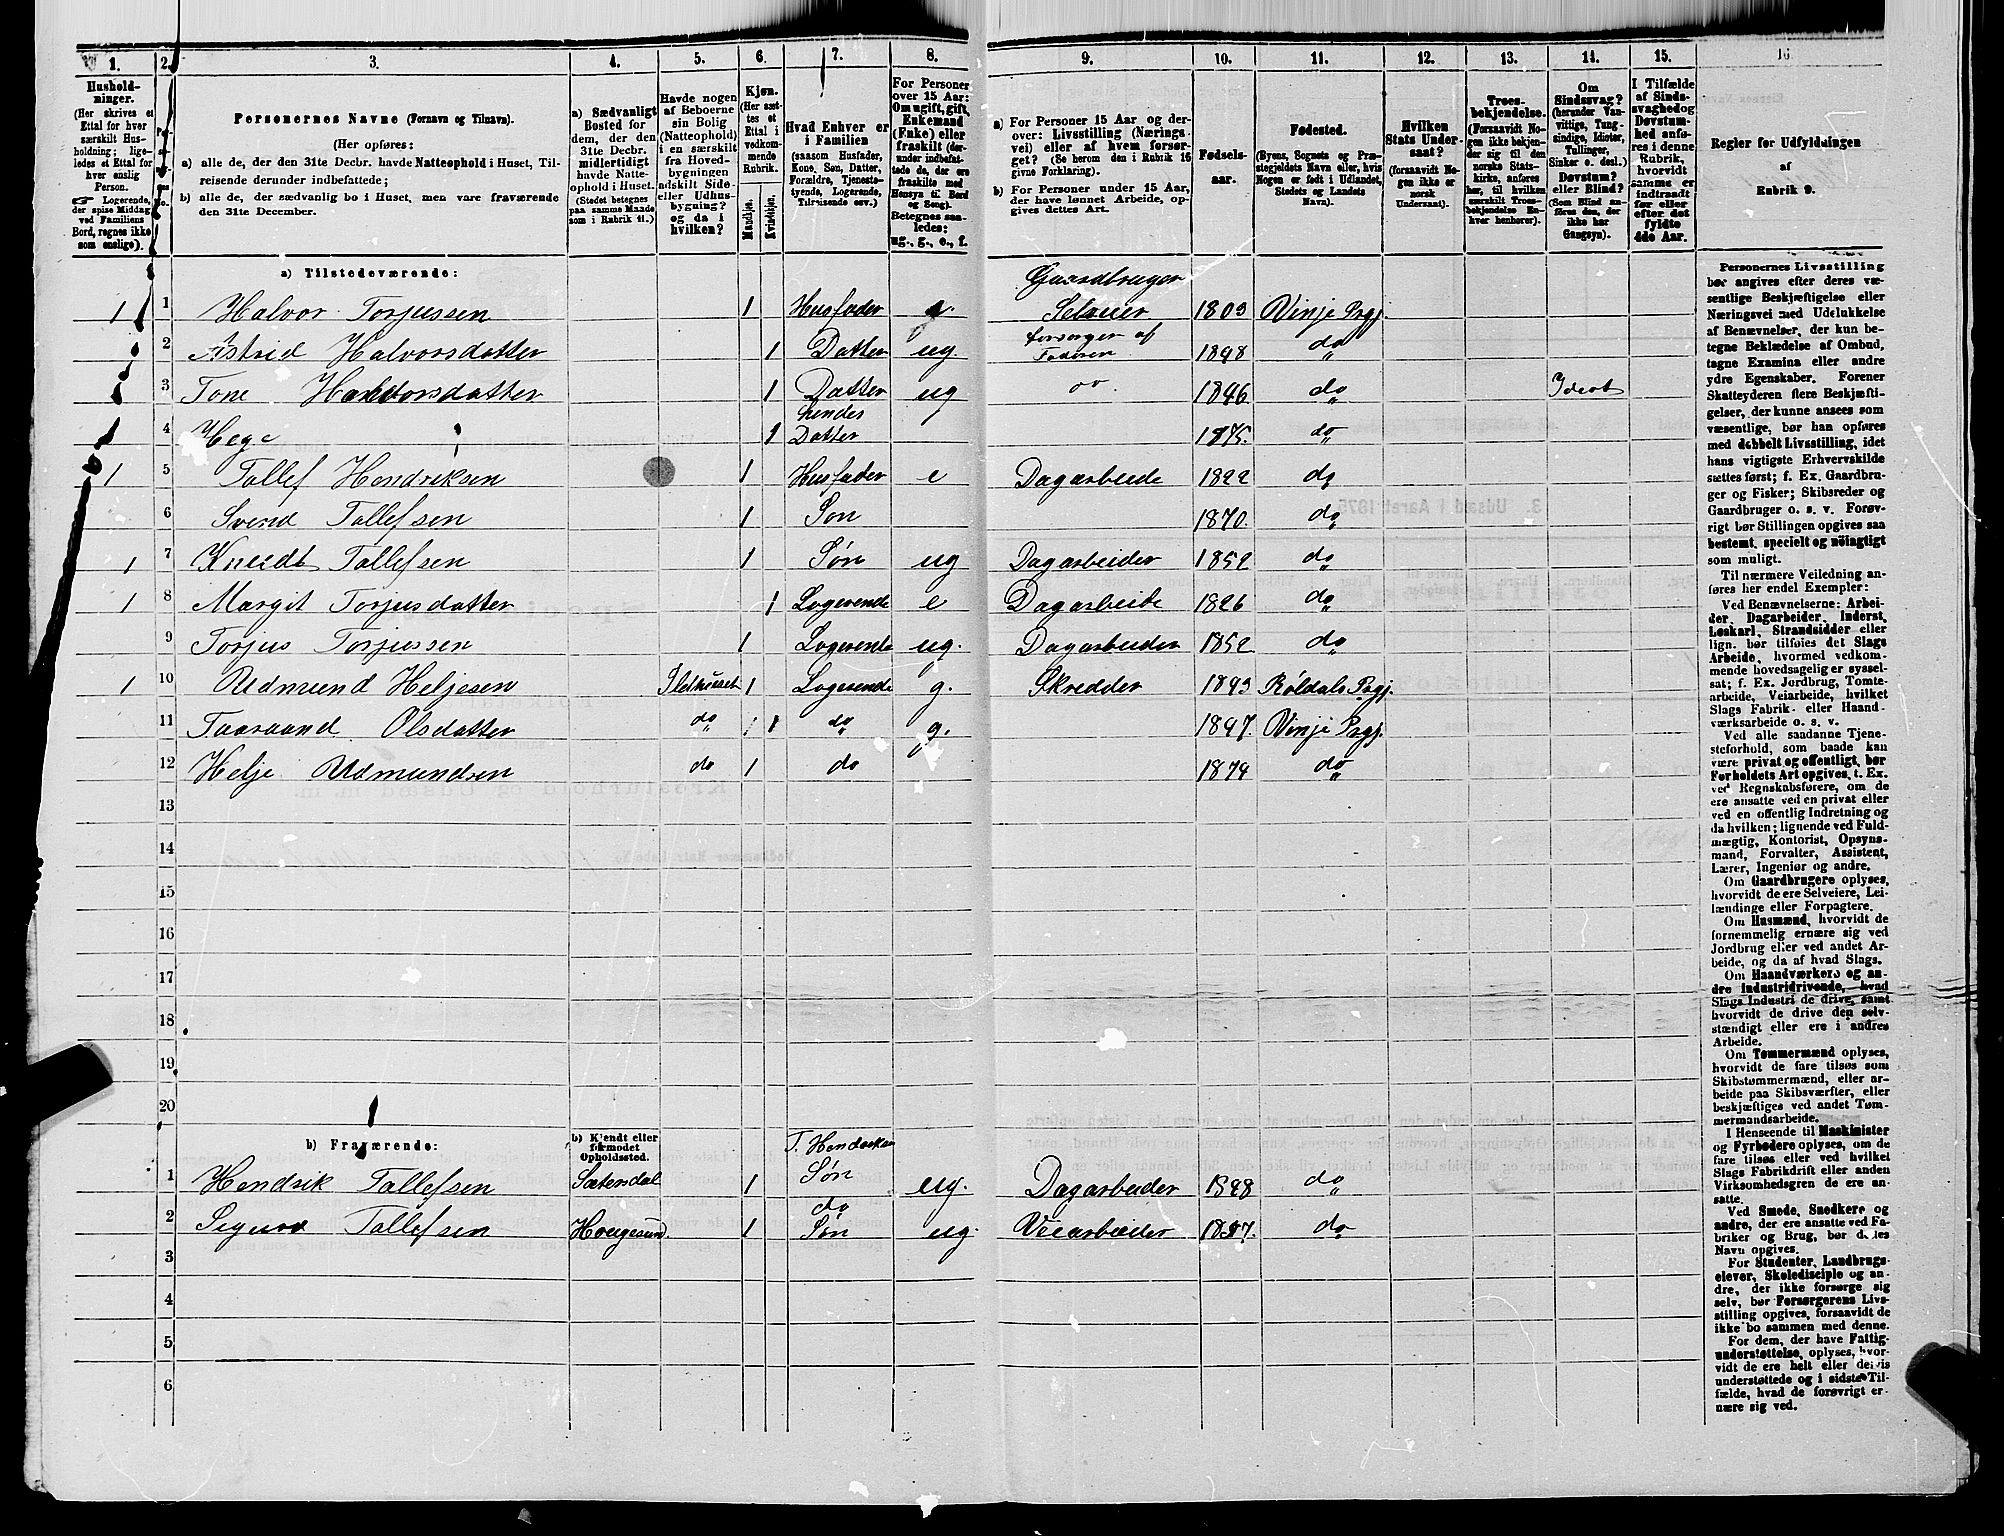 1. 2. 3. 4. 5. 6. 7. 8. 9. 10. 11. 12. 13. 14. 15. 16.
Hushold-
ninger.
(Her skrives et
Ettal for hver
særskilt Hus-
holdning; lige-
ledes et Ettal for
hver enslig
Person.
Logerende,
der spise Middag
ved Familiens
Bord, regnes ikke
som enslige).
Personernes Navne (Fornavn og Tilnavn).
(Her opføres:
a) alle de, der den 31te Decbr. havde Natteophold i Huset, Til-
reisende derunder indbefattede;
b) alle de, der sædvanlig bo i Huset, men vare fraværende
den 31te December.
a) Sædvanligt
Bosted for
dem, der den
31te Decbr.
midlertidigt
havde Natte-
ophold i Huset.
(Stedet betegnes
paa samme Maade
som i Rubrik 11.)
Havde nogen
af Beboerne
sin Bolig
(Natteophold)
i en særskilt
fra Hoved-
bygningen
adskilt Side-
eller Udhus-
bygning?
og da i
hvilken?
Kjøn.
(Her sæt-
tes et
Ettal i
vedkom-
mende
Rubrik.
Mandkjøn.
Kvindekjøn.
Hvad Enhver er
i Familien
(saasom Husfader,
Kone, Søn, Datter,
Forældre, Tjeneste-
tyende, Logerende,
Tilreisende osv.)
For Personer
over 15 Aar:
Om ugift, gift,
Enkemand
(Enke) eller
fraskilt (der-
under indbefat-
tede de, der ere
fraskilte med
Hensyn til Bord
og Seng).
Betegnes saa-
ledes:
ug., g., e., f.
a) For Personer 15 Aar og der-
over: Livsstilling (Nærings-
vei) eller af hvem forsør-
get? (Se herom den i Rubrik 16
givne Forklaring).
b) For Personer under 15 Aar,
der have lønnet Arbeide, op-
gives dettes Art.
Fødsels-
aar.
Fødested.
(Byens, Sognets og Præ-
stegjeldets Navn eller, hvis
Nogen er født i Udlandet,
Stedets og Landets
Navn).
Hvilken
Stats Under-
saat?
(forsaavidt No-
gen ikke er
norsk
Undersaat).
Troes-
bekjendelse.
(Forsaavidt No-
gen ikke bekjen-
der sig til den
norske Stats-
kirke, anføres
her, til hvilken
særskilt Troes-
bekjendelse En-
hver henhører).
Om
Sindssvag?
(herunder Van-
vittige, Tung-
sindige, Idioter,
Tullinger,
Sinker o. desl.)
Døvstum?
eller Blind?
(Som Blind an-
føres den, der
ikke har
Gangsyn).
I Tilfælde
af Sinds-
svaghed og
Døvstum-
hed anfø-
res i denne
Rubrik,
hvorvidt
samme er
indtraadt
før eller
efter det
fyldte
4de Aar.
Regler for Udfyldningen
af
Rubrik 9.
a) Tilstedeværende:
1 1 Halvor Torjussen 1 Husfader e. Gaardbruger Selveier 1803 Vinje Prgj.
2 Astrid Halvorsdatter 1 Datter ug. forsørges af Faderen 1848 do
3 Tone Halvorsdatter 1 Datter ug oo 1846 do Idiot
4 Hege 1 hendes Datter 1875. do
1 5 Tallef Hendriksen 1 Husfader e Dagarbeide 1822 do
6 Svend Tallefsen 1 Søn 1870. do
1 7 Knudt Tallefsen 1 Søn ug Dagarbeider 1852 do
1 8 Margit Torjusdatter 1 Logerende e Dagarbeide 1826 do
9 Torjus Torjussen 1 Logerende ug. Dagarbeider 1852 do
1 10 Udmund Heljesen Ildhuset 1 Logerende g. Skredder 1843 Röldals Prgj.
11 Taaraand Olsdatter do 1 do g. 1847. Vinje Prgj.
12 Helje Udmundsen do 1 do 1874 do
13
14
15
16
17
18
19
20
b) Fraværende:
b) Kjendt eller
formodet
Opholdssted.
T. Hendriksen
1 Hendrik Tallefsen Sætersdal 1 Søn ug. Dagarbeider 1848 do
do
2 Sigurd Tallefsen Hougesund. 1 Søn ug. Veiarbeider 1857. do
3
4
5
6
Personernes Livsstilling
bør angives efter deres væ-
sentlige Beskjæftigelse eller
Næringsvei med Udelukkelse
af Benævnelser, der kun be-
tegne Beklædelse af Ombud,
tagne Examina eller andre
ydre Egenskaber. Forener
Skatteyderen flere Beskjæfti-
gelser, der kunne ansees som
væsentlige, bør han opføres
med dobbelt Livsstilling, idet
hans vigtigste Erhvervskilde
sættes først; f. Ex. Gaardbru-
ger og Fisker; Skibsreder og
Gaardbruger o. s. v. Forøv-
rigt bør Stillingen opgives saa
bestemt, specielt og nöiagtigt
som muligt.
Til nærmere Veiledning an-
føres her endel Exempler:
Ved Benævnelserne: Arbei-
der, Dagarbeider, Inderst,
Løskarl, Strandsidder eller
lign. bør tilføies det Slags
Arbeide, hvormed vedkom-
mende hovedsagelig er syssel-
sat; f. Ex. Jordbrug, Tomte-
arbeide, Veiarbeide, hvilket
Slags Fabrik- eller Haand-
værksarbeide o. s. v.
Ved alle saadanne Tjene-
steforhold, som baade kan
være privat og offentligt, bør
Forholdets Art opgives, t. Ex.
ved Regnskabsførere, om de
ere ansatte ved en privat eller
ved en offentlig Indretning og
da hvilken; lignende ved Fuld-
mægtig, Kontorist, Opsyns-
mand, Forvalter, Assistent,
Lærer, Ingeniør og andre.
Om Gaardbrugere oplyses,
hvorvidt de ere Selveiere, Lei-
lændinge eller Forpagtere.
Om Husmænd, hvorvidt de
fornemmelig ernære sig ved
Jordbrug eller ved andet Ar-
beide, og da af hvad Slags.
Om Haandværkere og an-
dre Industridrivende, hvad
Slags Industri de drive, samt
hvorvidt de drive den selv-
stændigt eller ere i andres
Arbeide.
Om Tømmermænd oplyses,
hvorvidt de fare tilsøs som
Skibstømmermænd, eller ar-
beide paa Skibsværfter, eller
beskjæftiges ved andet Tøm-
mermandsarbeide.
I Henseende til Maskinister
og Fyrbødere oplyses, om de
fare tilsøs eller ved hvilket
Slags Fabrikdrift eller anden
Virksomhedsgren de ere an-
satte.
Ved Smede, Snedkere og
andre, der ere ansatte ved Fa-
briker og Brug, bør dettes
Navn opgives.
For Studenter, Landbrugs-
elever, Skoledisciple og an-
dre, der ikke forsørge sig
selv, bør Forsørgerens Livs-
stilling opgives, forsaavidt de
ikke bo sammen med denne.
For dem, der have Fattig-
understøttelse, oplyses, hvor-
vidt de ere helt eller delvis
understøttede og i sidste Til-
fælde, hvad de forøvrigt er-
nære sig ved.